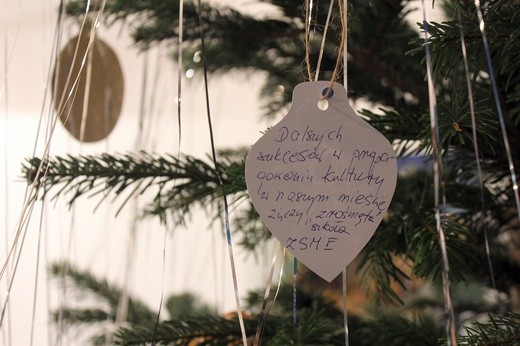 Dalszych
sukcesów w propa-
gowaniu kultury
w naszym mieście
życzy "zrośnięta"
szkoła
ZSME